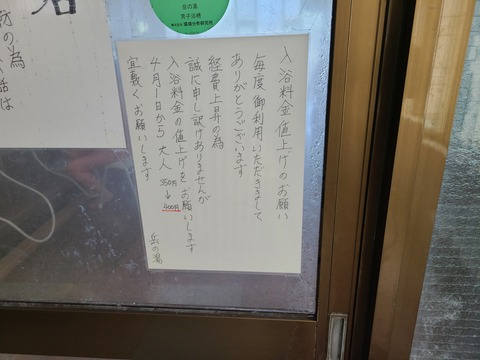 入浴料金値上げのお願い
毎度御利用いただきまして
ありがとうございます
経費上昇の為
誠に申し訳けありませんが
入浴料金の値上げをお願いします
4月1日から 大人 350円→400円
宜敷くお願いします
岳の湯
男子浴槽
防の為
話は